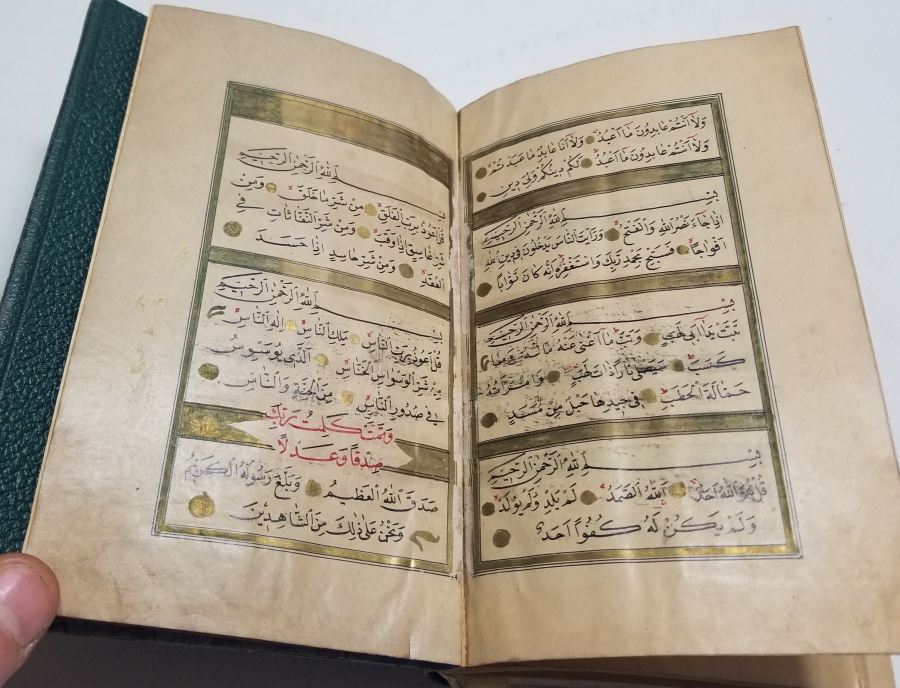 وَلَا اَنْتُمْ عَابِدُونَ مَا اَعْبُدُ وَلَا اَنَا عَابِدٌ مَا عَبَدْتُمْ
وَلَا اَنْتُمْ عَابِدُونَ مَا اَعْبُدُ لَكُمْ دِينُكُمْ وَلِيَ دِينِ
بِسْمِ اللهِ الرَّحْمٰنِ الرَّحِيمِ
اِذَا جَاءَ نَصْرُ اللهِ وَالْفَتْحُ وَرَاَيْتَ النَّاسَ يَدْخُلُونَ فِي دِينِ اللهِ
اَفْوَاجًا فَسَبِّحْ بِحَمْدِ رَبِّكَ وَاسْتَغْفِرْهُ اِنَّهُ كَانَ تَوَّابًا
بِسْمِ اللهِ الرَّحْمٰنِ الرَّحِيمِ
تَبَّتْ يَدَا اَبِي لَهَبٍ وَتَبَّ مَا اَغْنٰى عَنْهُ مَالُهُ وَمَا
كَسَبَ سَيَصْلٰى نَارًا ذَاتَ لَهَبٍ وَامْرَاَتُهُ
حَمَّالَةَ الْحَطَبِ فِي جِيدِهَا حَبْلٌ مِنْ مَسَدٍ
بِسْمِ اللهِ الرَّحْمٰنِ الرَّحِيمِ
قُلْ هُوَ اللهُ اَحَدٌ اَللهُ الصَّمَدُ لَمْ يَلِدْ وَلَمْ يُولَدْ
وَلَمْ يَكُنْ لَهُ كُفُوًا اَحَدٌ
بِسْمِ اللهِ الرَّحْمٰنِ الرَّحِيمِ
قُلْ اَعُوذُ بِرَبِّ الْفَلَقِ مِنْ شَرِّ مَا خَلَقَ وَمِنْ
شَرِّ غَاسِقٍ اِذَا وَقَبَ وَمِنْ شَرِّ النَّفَّاثَاتِ فِي
الْعُقَدِ وَمِنْ شَرِّ حَاسِدٍ اِذَا حَسَدَ
بِسْمِ اللهِ الرَّحْمٰنِ الرَّحِيمِ
قُلْ اَعُوذُ بِرَبِّ النَّاسِ مَلِكِ النَّاسِ اِلٰهِ النَّاسِ
مِنْ شَرِّ الْوَسْوَاسِ الْخَنَّاسِ اَلَّذِي يُوَسْوِسُ
فِي صُدُورِ النَّاسِ مِنَ الْجِنَّةِ وَالنَّاسِ
وَتَمَّتْ كَلِمَتُ رَبِّكَ
صِدْقًا وَعَدْلًا
صَدَقَ اللهُ الْعَظِيمُ وَبَلَّغَ رَسُولُهُ الْكَرِيمُ
وَنَحْنُ عَلٰى ذٰلِكَ مِنَ الشَّاهِدِينَ